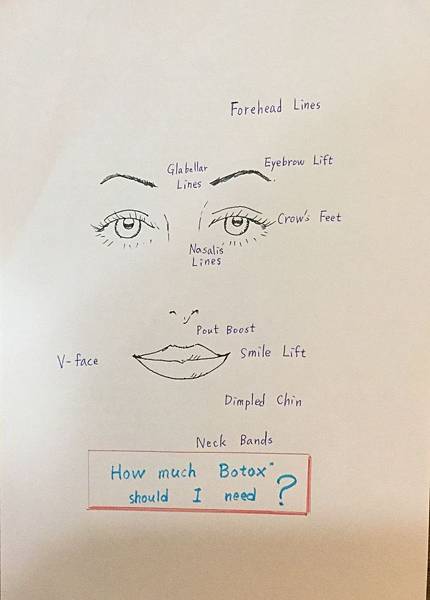 Forehead Lines
Glabellar
Lines
Eyebrow Lift
Crow's Feet
Nasalis
Lines
Pout Boost
V-face
Smile Lift
Dimpled Chin
Neck Bands
How much Botox"
should I need ?